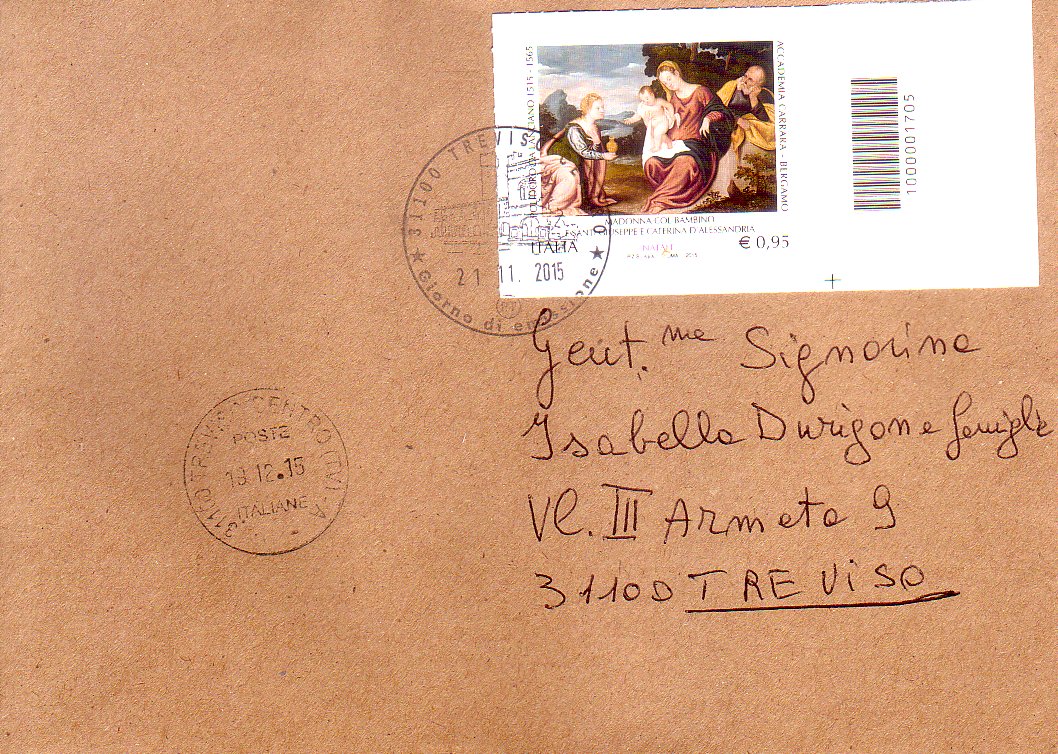 ACCADEMIA CARRARA - BERGAMO
1515 - 1565
MADONNA COL BAMBINO
GIUSEPPE E CATERINA D'ALESSANDRIA
ITALIA
NATALE
€ 0,95
2015
1000001705
31100 TREVISO
21 11. 2015
★ Giorno di emissione ★
Gent.me Signorina
Isabella Durigon e famiglia
Vl. III Armata 9
31100 TREViSO
31100 TREVISO CENTRO (TV)
POSTE
12.15
ITALIANE